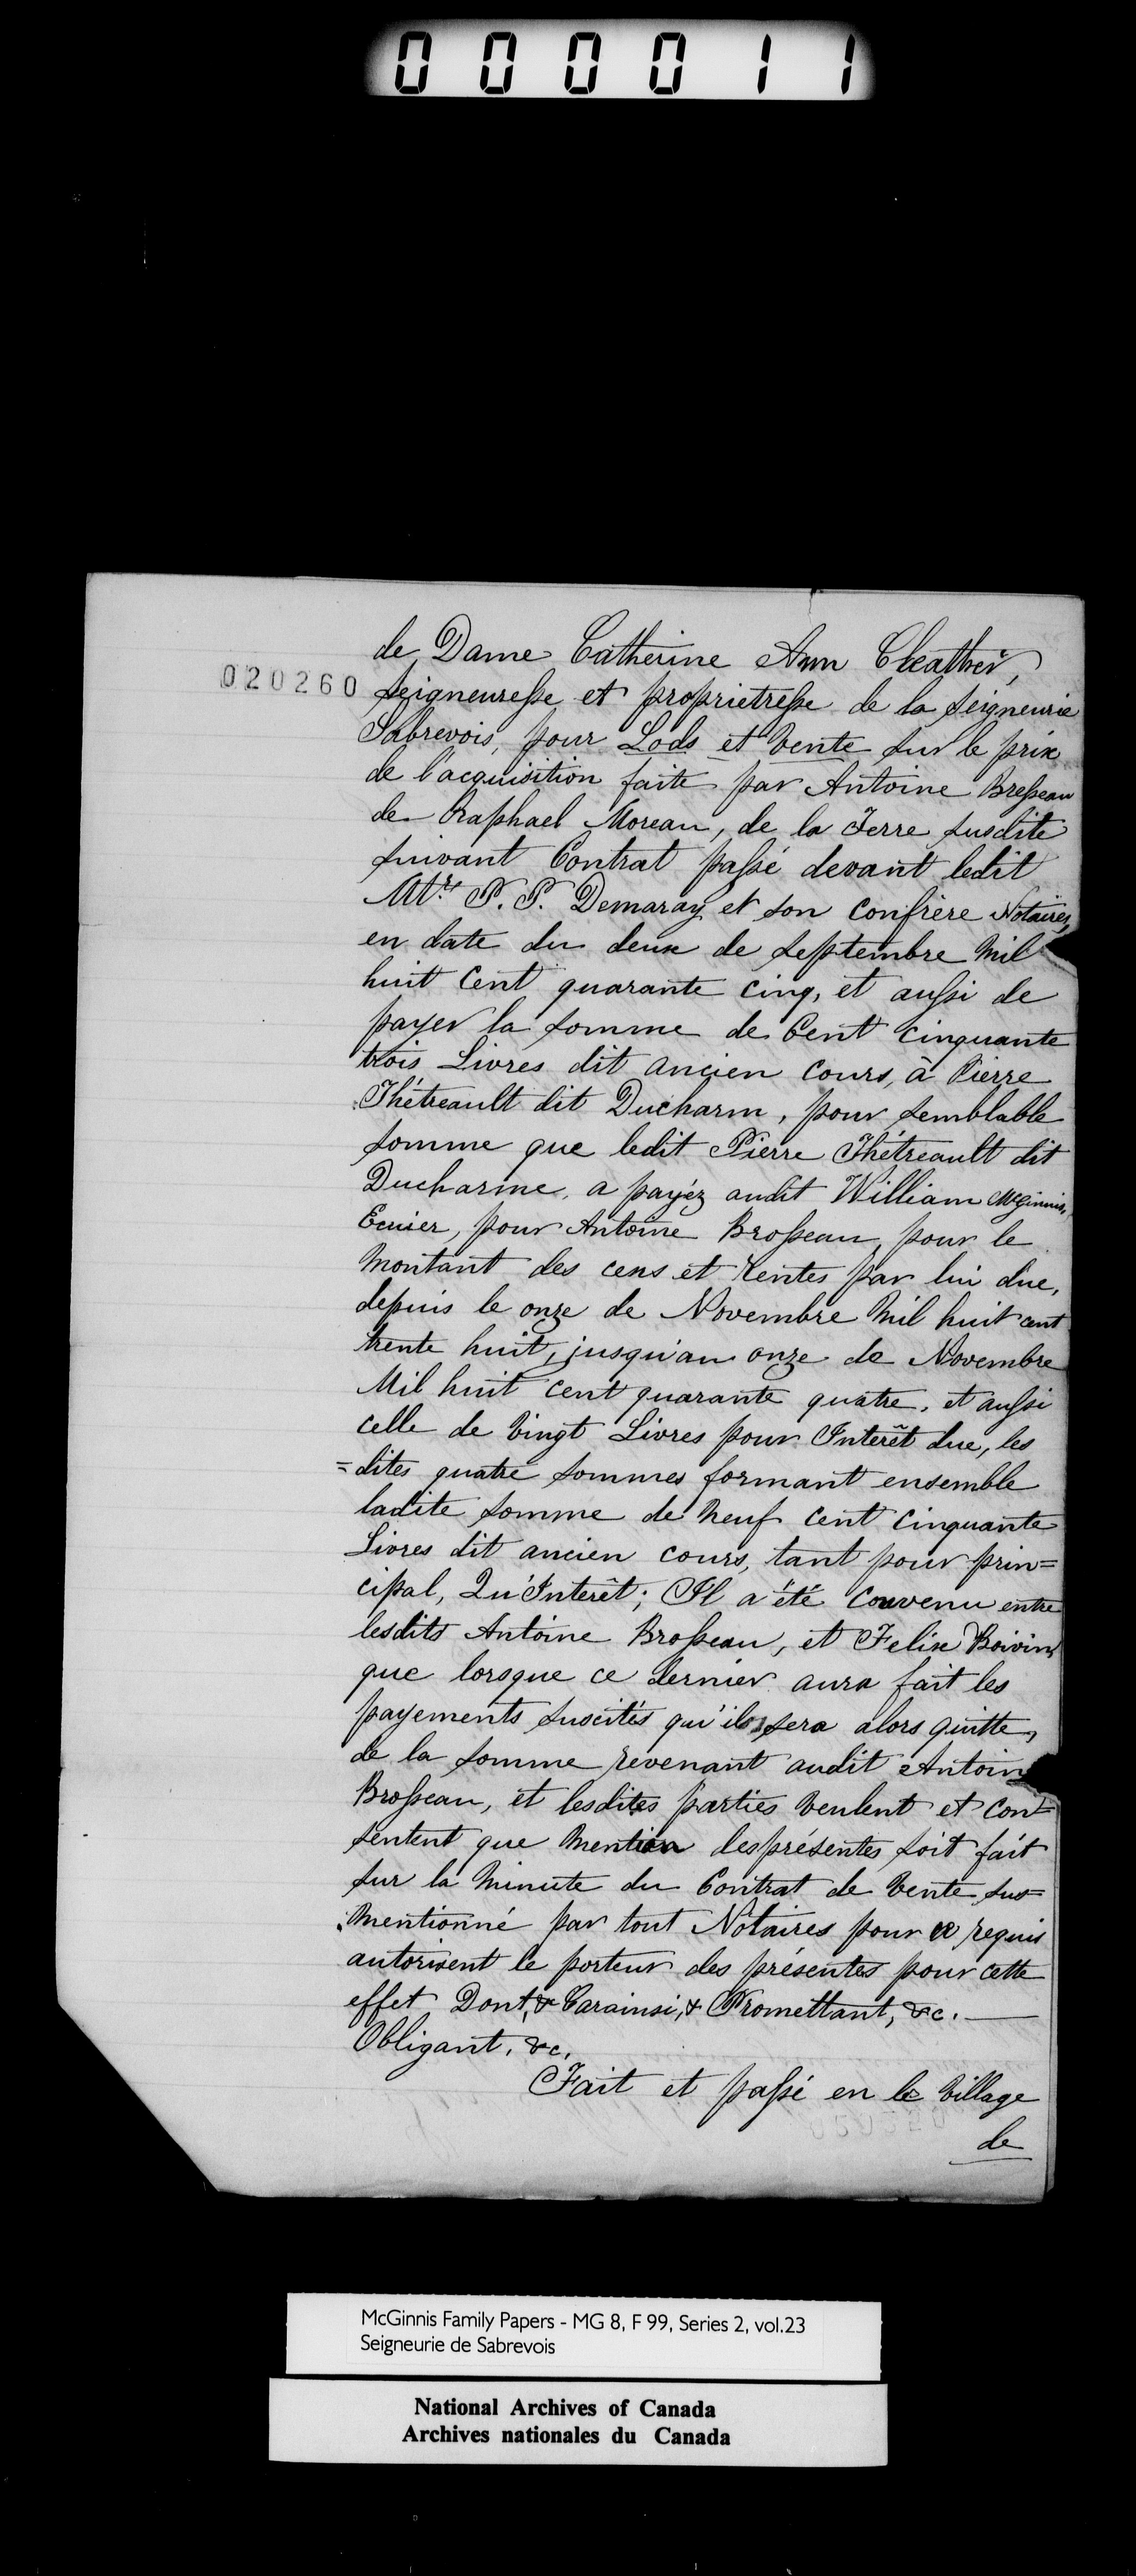 000011
020260
de Dame Catherine Ann Cleather,
Seigneuresse et proprietresse de la Seigneurie
Sabrevois, pour Lods et Vente sur le prix
de l'acquisition faite par Antoine Brosseau
de Raphael Moreau, de la Terre susdite
suivant Contrat passé devant ledit
Mtre P. P. Demaray et son confrère Notaires,
en date du deux de Septembre Mil
huit Cent quarante cinq, et aussi de
payer la somme de Cent cinquante
trois Livres dit ancien cours, à Pierre
Thétreault dit Ducharm, pour semblable
somme que ledit Pierre Thétreault dit
Ducharme, a payéz audit William McGinnis,
Ecuier, pour Antoine Brosseau, pour le
Montant des cens et rentes par lui due,
depuis le onze de Novembre Mil huit cent
trente huit, jusqu'au onze de Novembre
Mil huit cent quarante quatre, et aussi
celle de Vingt Livres pour Interêt due, les
=dites quatre sommes formant ensemble
ladite somme de Neuf Cent Cinquante
Livres dit ancien cours, tant pour prin=
cipal, Qu'Interêt; Il a été Convenu entre
lesdits Antoine Brosseau, et Felix Boivin
que lorsque ce dernier aura fait les
payements suscités qu'il sera alors quitte,
de la somme revenant audit Antoine
Brosseau, et lesdites parties veulent et con=
sentent que Mention des présentes soit fait
sur la Minute du Contrat de Vente sus=
mentionné par tout Notaires pour ce requis
autorisent le porteur des présentes pour cette
effet Dont, & Carainsi, & Promettant, &c.
Obligant, &c.
Fait et passé en le Village
de
McGinnis Family Papers - MG 8, F 99, Series 2, vol.23
Seigneurie de Sabrevois
National Archives of Canada
Archives nationales du Canada